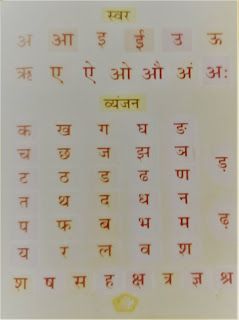 स्वर
अ आ इ ई उ ऊ
ऋ ए ऐ ओ औ अं अः
व्यंजन
क ख ग घ ङ
च छ ज झ ञ
ड़
ट ठ ड ढ ण
त थ द ध न
प फ ब भ म ढ़
य र ल व श
श ष स ह क्ष त्र ज्ञ श्र